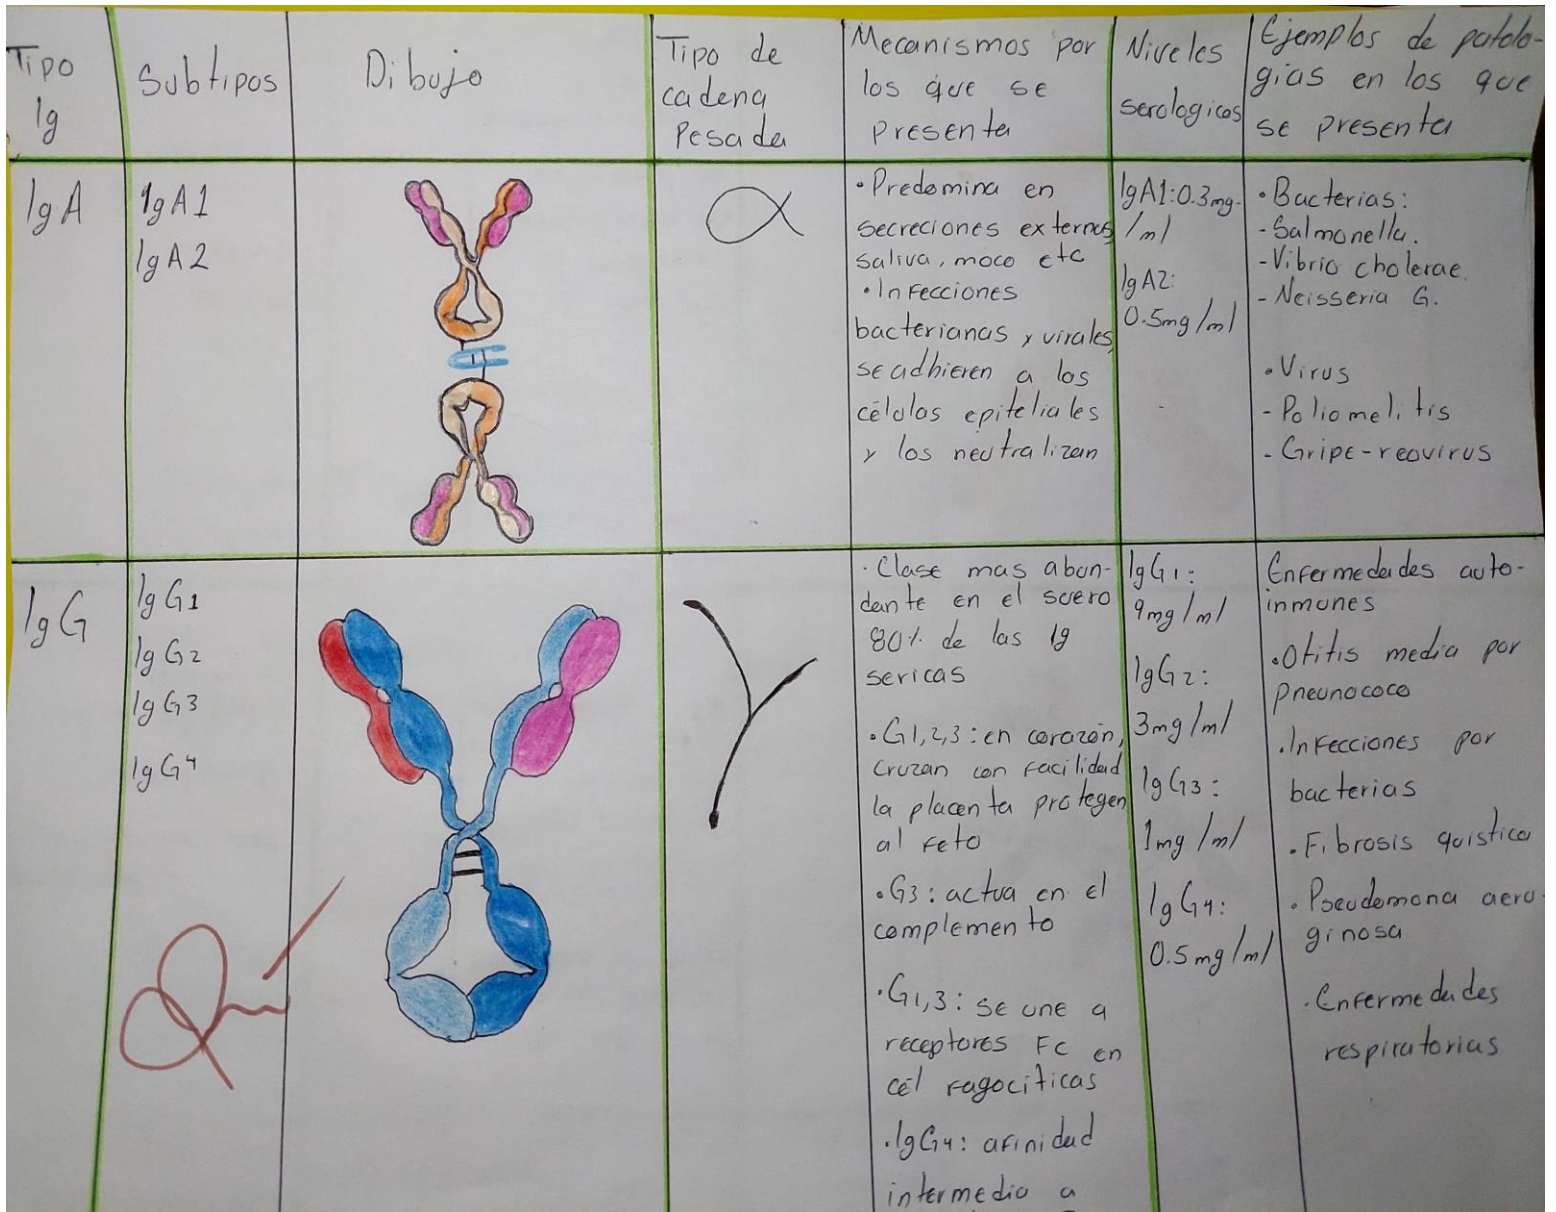 Tipo
Ig
Subtipos
Dibujo
Tipo de
cadena
Pesada
Mecanismos por
los que se
presenta
Niveles
serologicos
Ejemplos de patolo-
gias en los que
se presenta
IgA
IgA1
IgA2
α
• Predomina en
secreciones externas
saliva, moco etc
• Infecciones
bacterianas y virales,
se adhieren a los
célolas epiteliales
y los neutralizan
IgA1: 0.3mg-
/ml
IgA2:
0.5mg/ml
• Bacterias:
- Salmonella.
- Vibrio cholerae.
- Neisseria G.
• Virus
- Poliomelitis
- Gripe-reovirus
IgG
IgG1
IgG2
IgG3
IgG4
γ
· Clase mas abun-
dante en el suero
80% de las Ig
sericas
• G1,2,3: en corazón,
cruzan con facilidad
la placenta protegen
al feto
• G3: actua en el
complemento
• G1,3: se une a
receptores Fc en
cél fagociticas
• IgG4: afinidad
intermedia a
IgG1:
9mg/ml
IgG2:
3mg/ml
IgG3:
1mg/ml
IgG4:
0.5mg/ml
Enfermedades auto-
inmunes
• Otitis media por
pneunococo
• Infecciones por
bacterias
• Fibrosis quistica
• Pseudomona aero-
ginosa
• Enfermedades
respiratorias